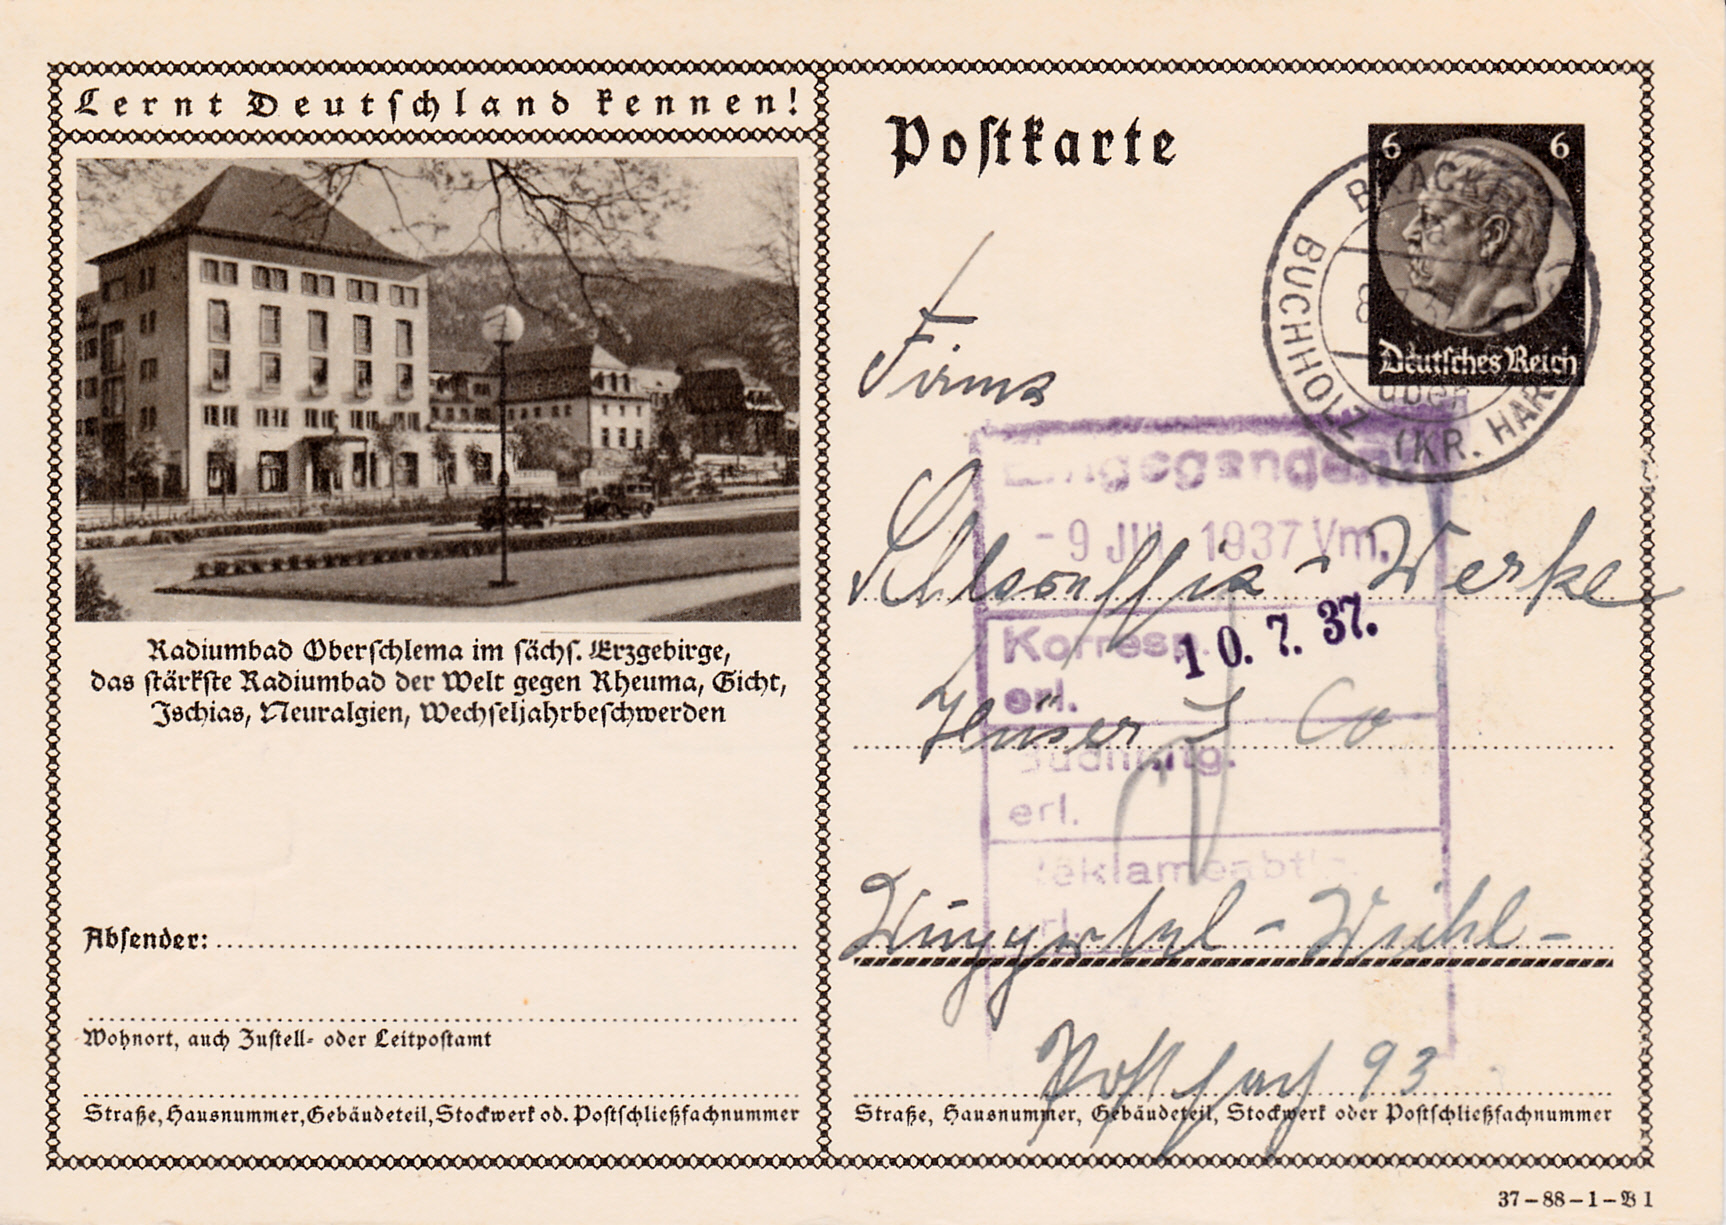 Lernt Deutschland kennen!
Radiumbad Oberschlema im sächs. Erzgebirge,
das stärkste Radiumbad der Welt gegen Rheuma, Gicht,
Ischias, Neuralgien, Wechseljahrbeschwerden
Absender:
Wohnort, auch Zustell- oder Leitpostamt
Straße, Hausnummer, Gebäudeteil, Stockwerk od. Postschließfachnummer
Postkarte
6 6
Deutsches Reich
BUCHHOLZ (KR. HAR
über
Firma
Eingegangen
-9 JUL 1937 Vm.
Werke
Korresp.
10.7.37.
erl.
Hüser & Co
erl.
Reklameabtlg.
Wuppertal-
Postfach 93
Straße, Hausnummer, Gebäudeteil, Stockwerk oder Postschließfachnummer
37-88-1-B1